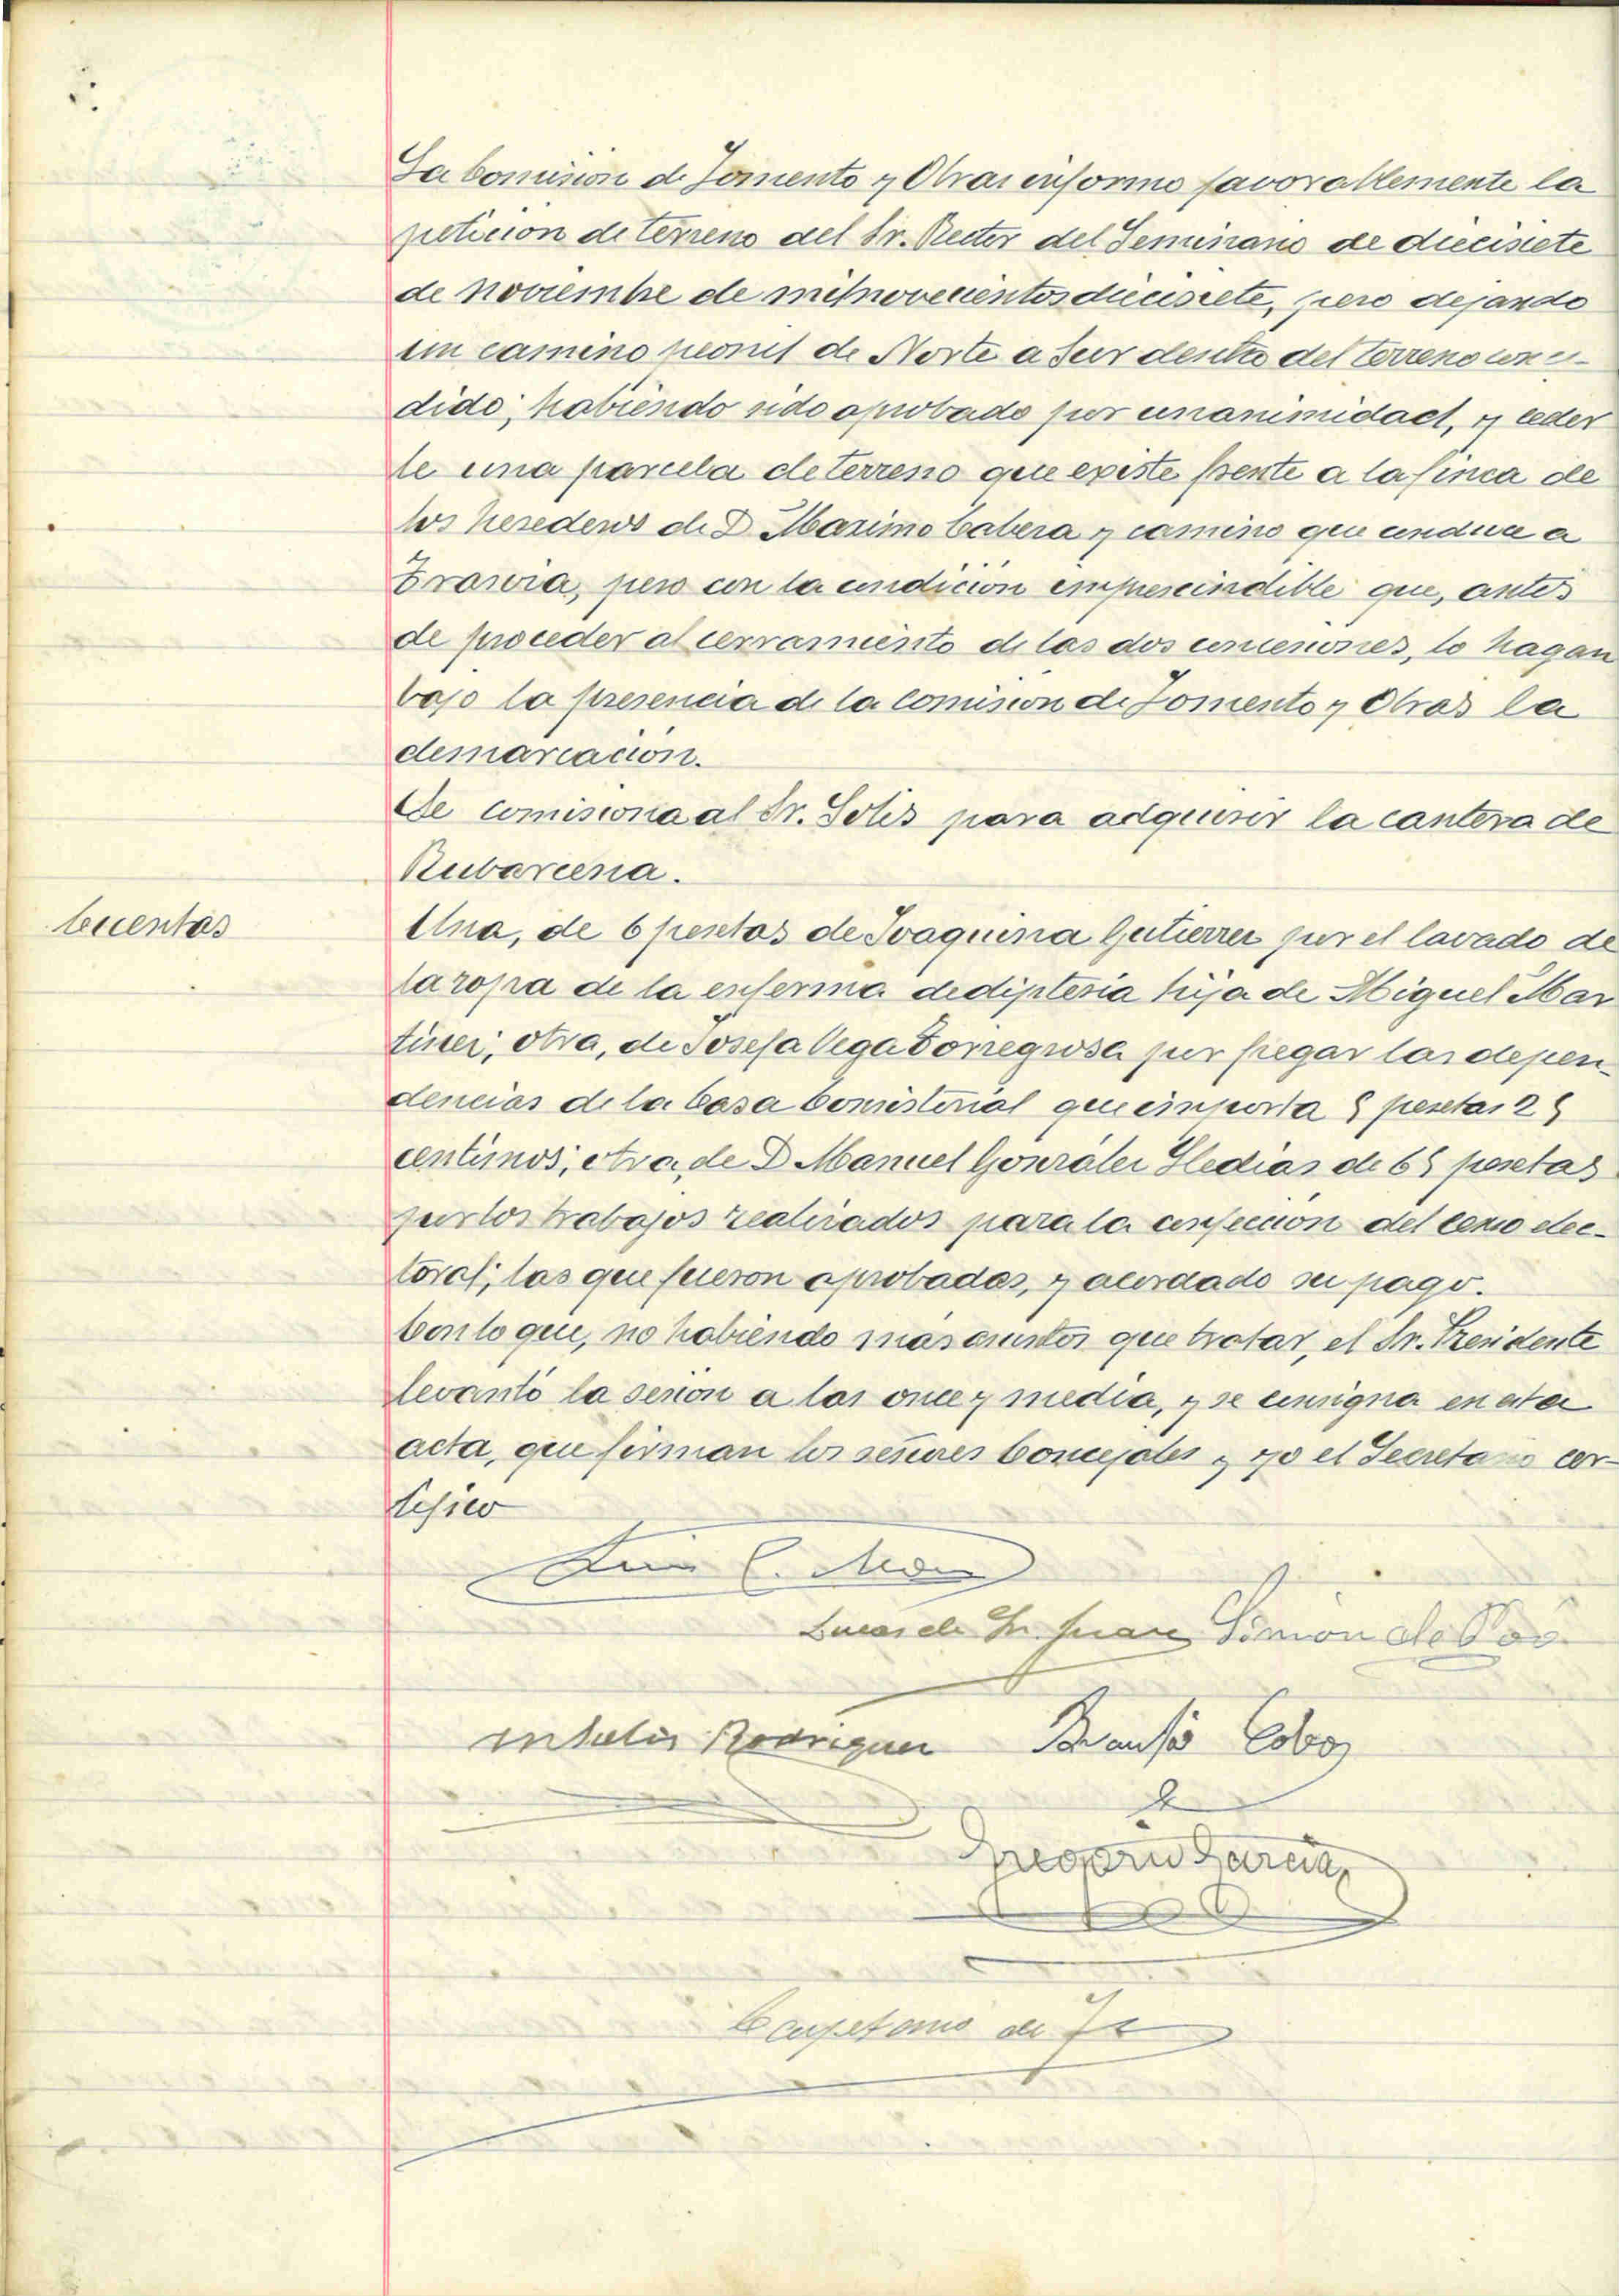 La Comision de Fomento y Obras informo favorablemente la
peticion de terreno del Sr. Rector del Seminario de diecisiete
de noviembre de mil novecientos diecisiete, pero dejando
un camino peonil de Norte a Sur dentro del terreno conce-
dido; habiendo sido aprobado por unanimidad, y ceder
le una parcela de terreno que existe frente a la finca de
los herederos de D. Maximo Cabera y camino que conduce a
Trasvia, pero con la condición imprescindible que, antes
de proceder al cerramiento de las dos concesiones, lo hagan
bajo la presencia de la Comision de Fomento y Obras la
demarcación.
Se comisiona al Sr. Solis para adquirir la cantera de
Rubarcena.
Cuentas
Una, de 6 pesetas de Joaquina Gutierrez por el lavado de
la ropa de la enferma de difteria hija de Miguel Mar
tinez; otra, de Josefa Vega Torregrosa por fregar las depen-
dencias de la Casa Consistorial que importa 5 pesetas 25
centimos; otra, de D Manuel González Hedias de 65 pesetas
por los trabajos realizados para la confección del censo elec-
toral; las que fueron aprobadas, y acordado su pago.
Con lo que, no habiendo mas asuntos que tratar, el Sr. Presidente
levantó la sesion a las once y media, y se consigna en esta
acta, que firman los señores Concejales y yo el Secretario cer-
tifico
Lucas de Sn. Juan Simon de Poó
Rodriguez Cobo
Gregorio Garcia